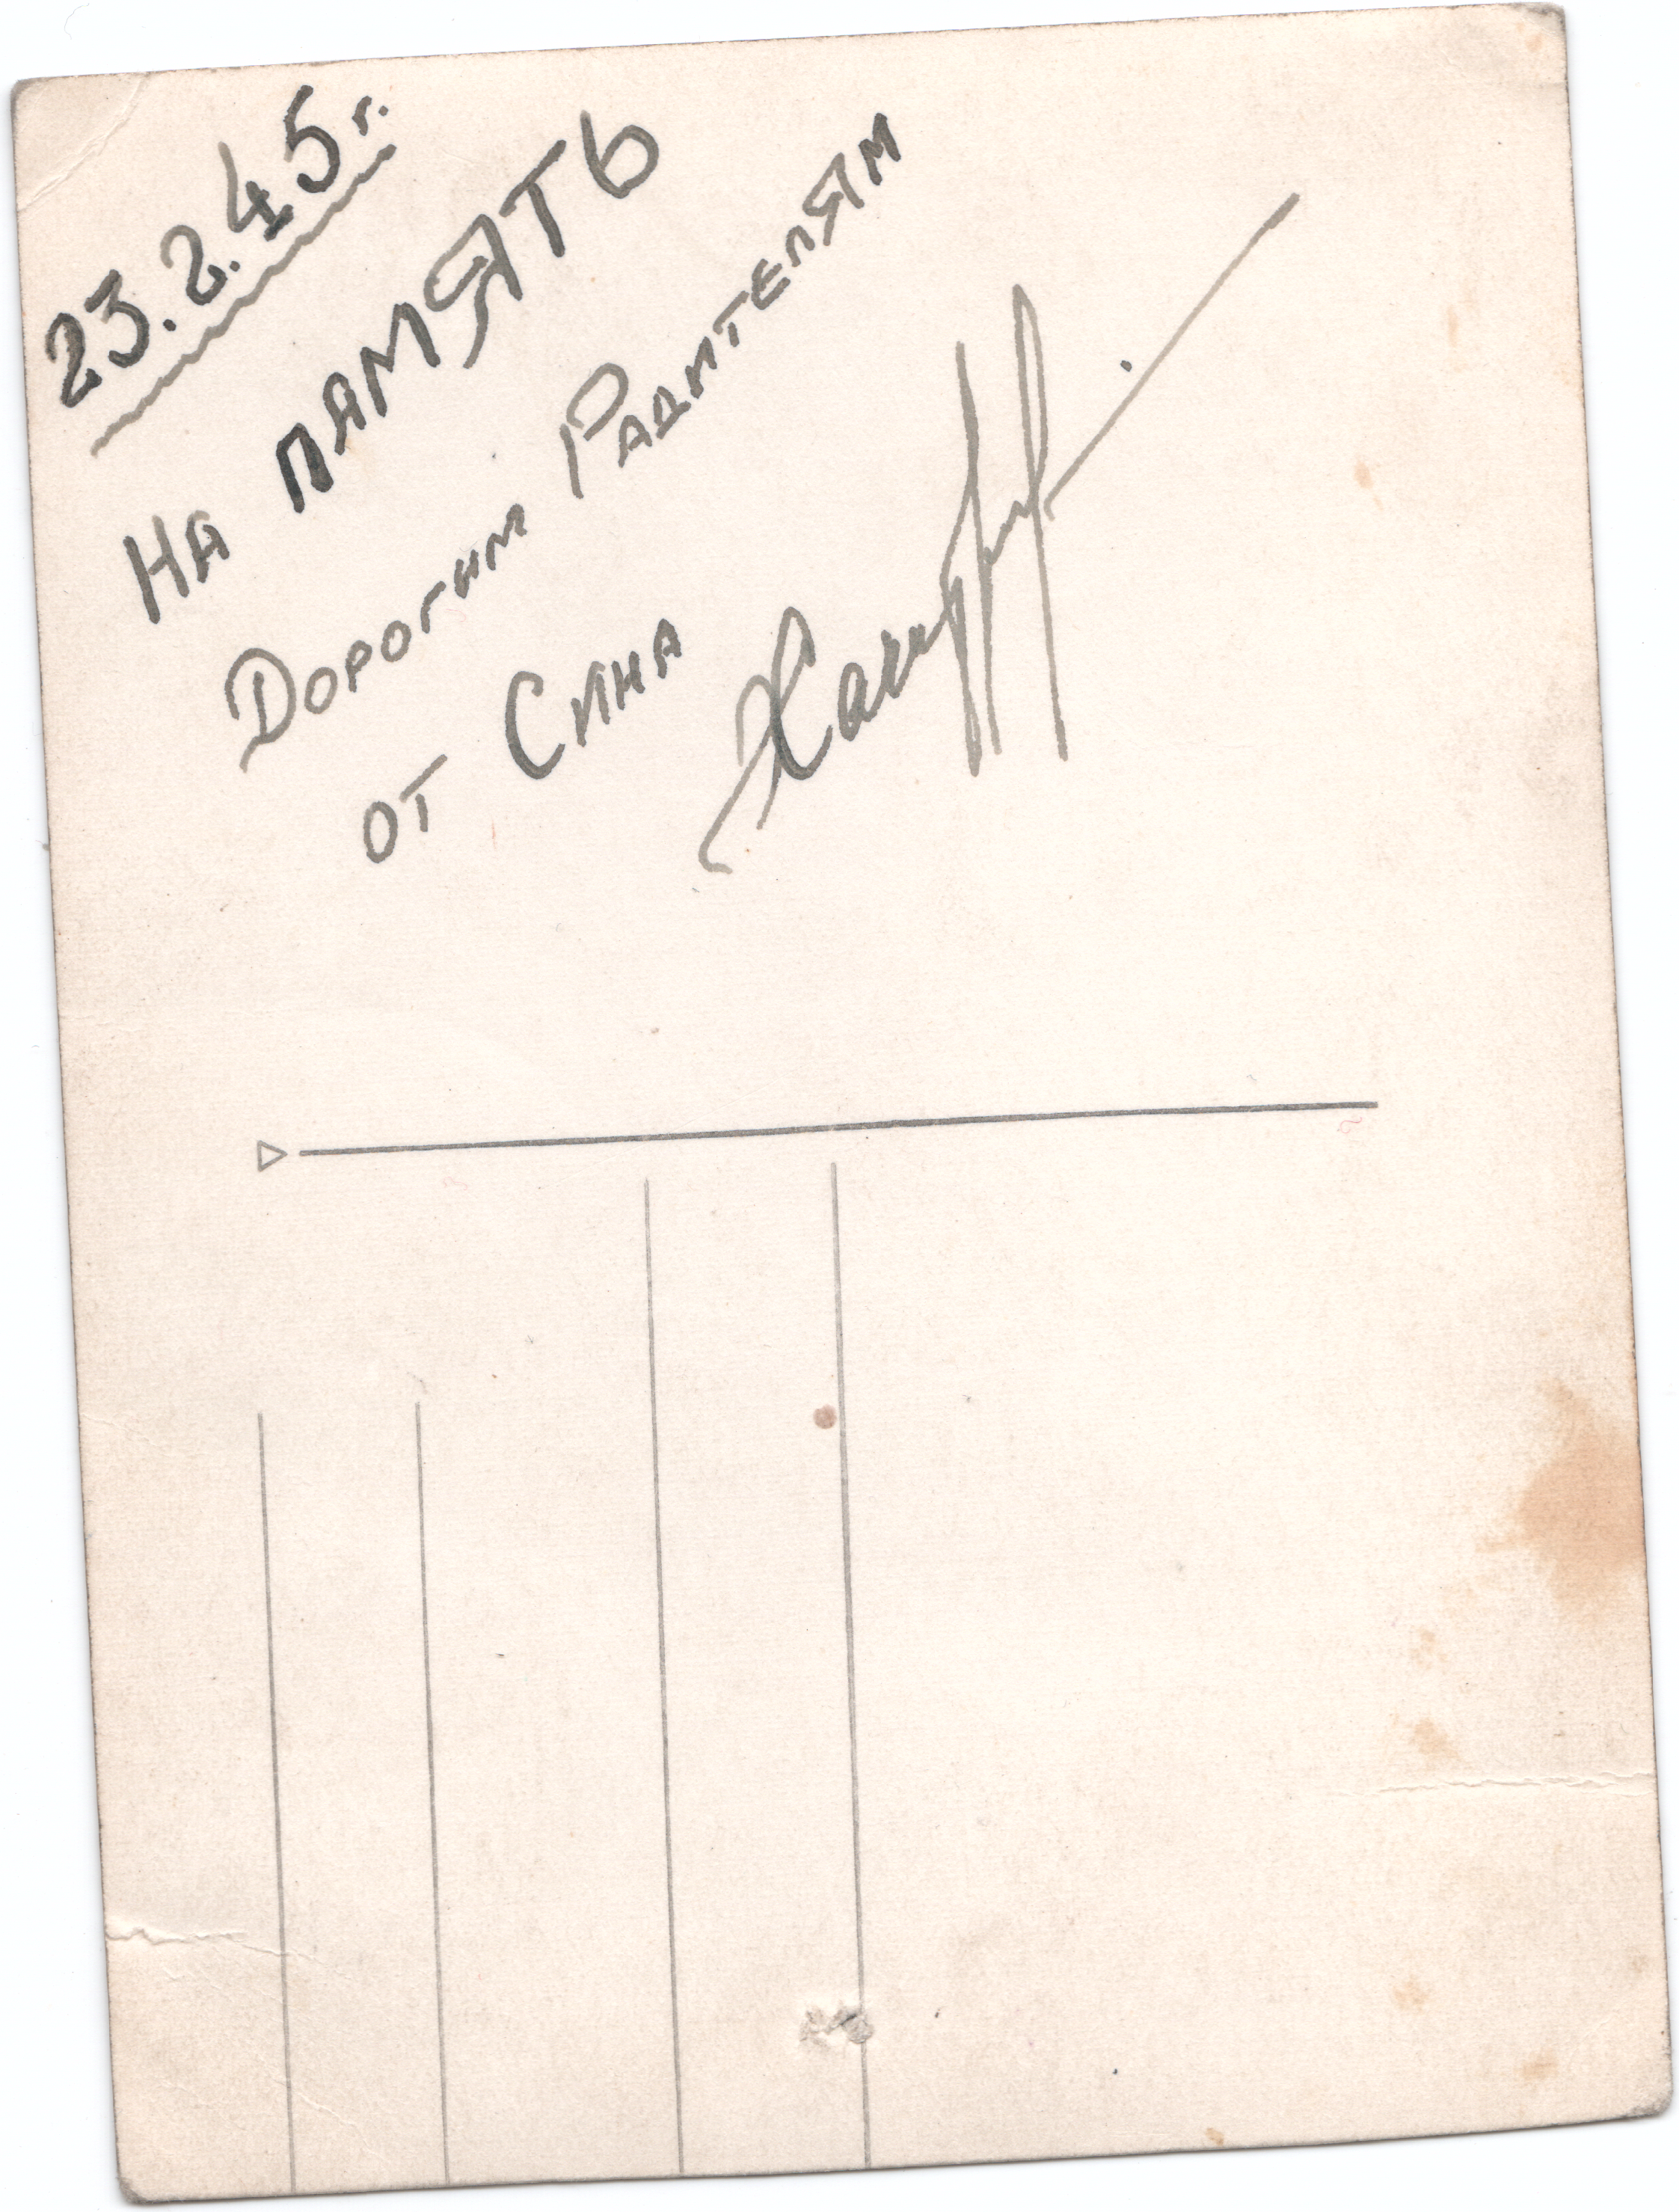 23.2.45г.
На память
Дорогим Радителям
от Сина